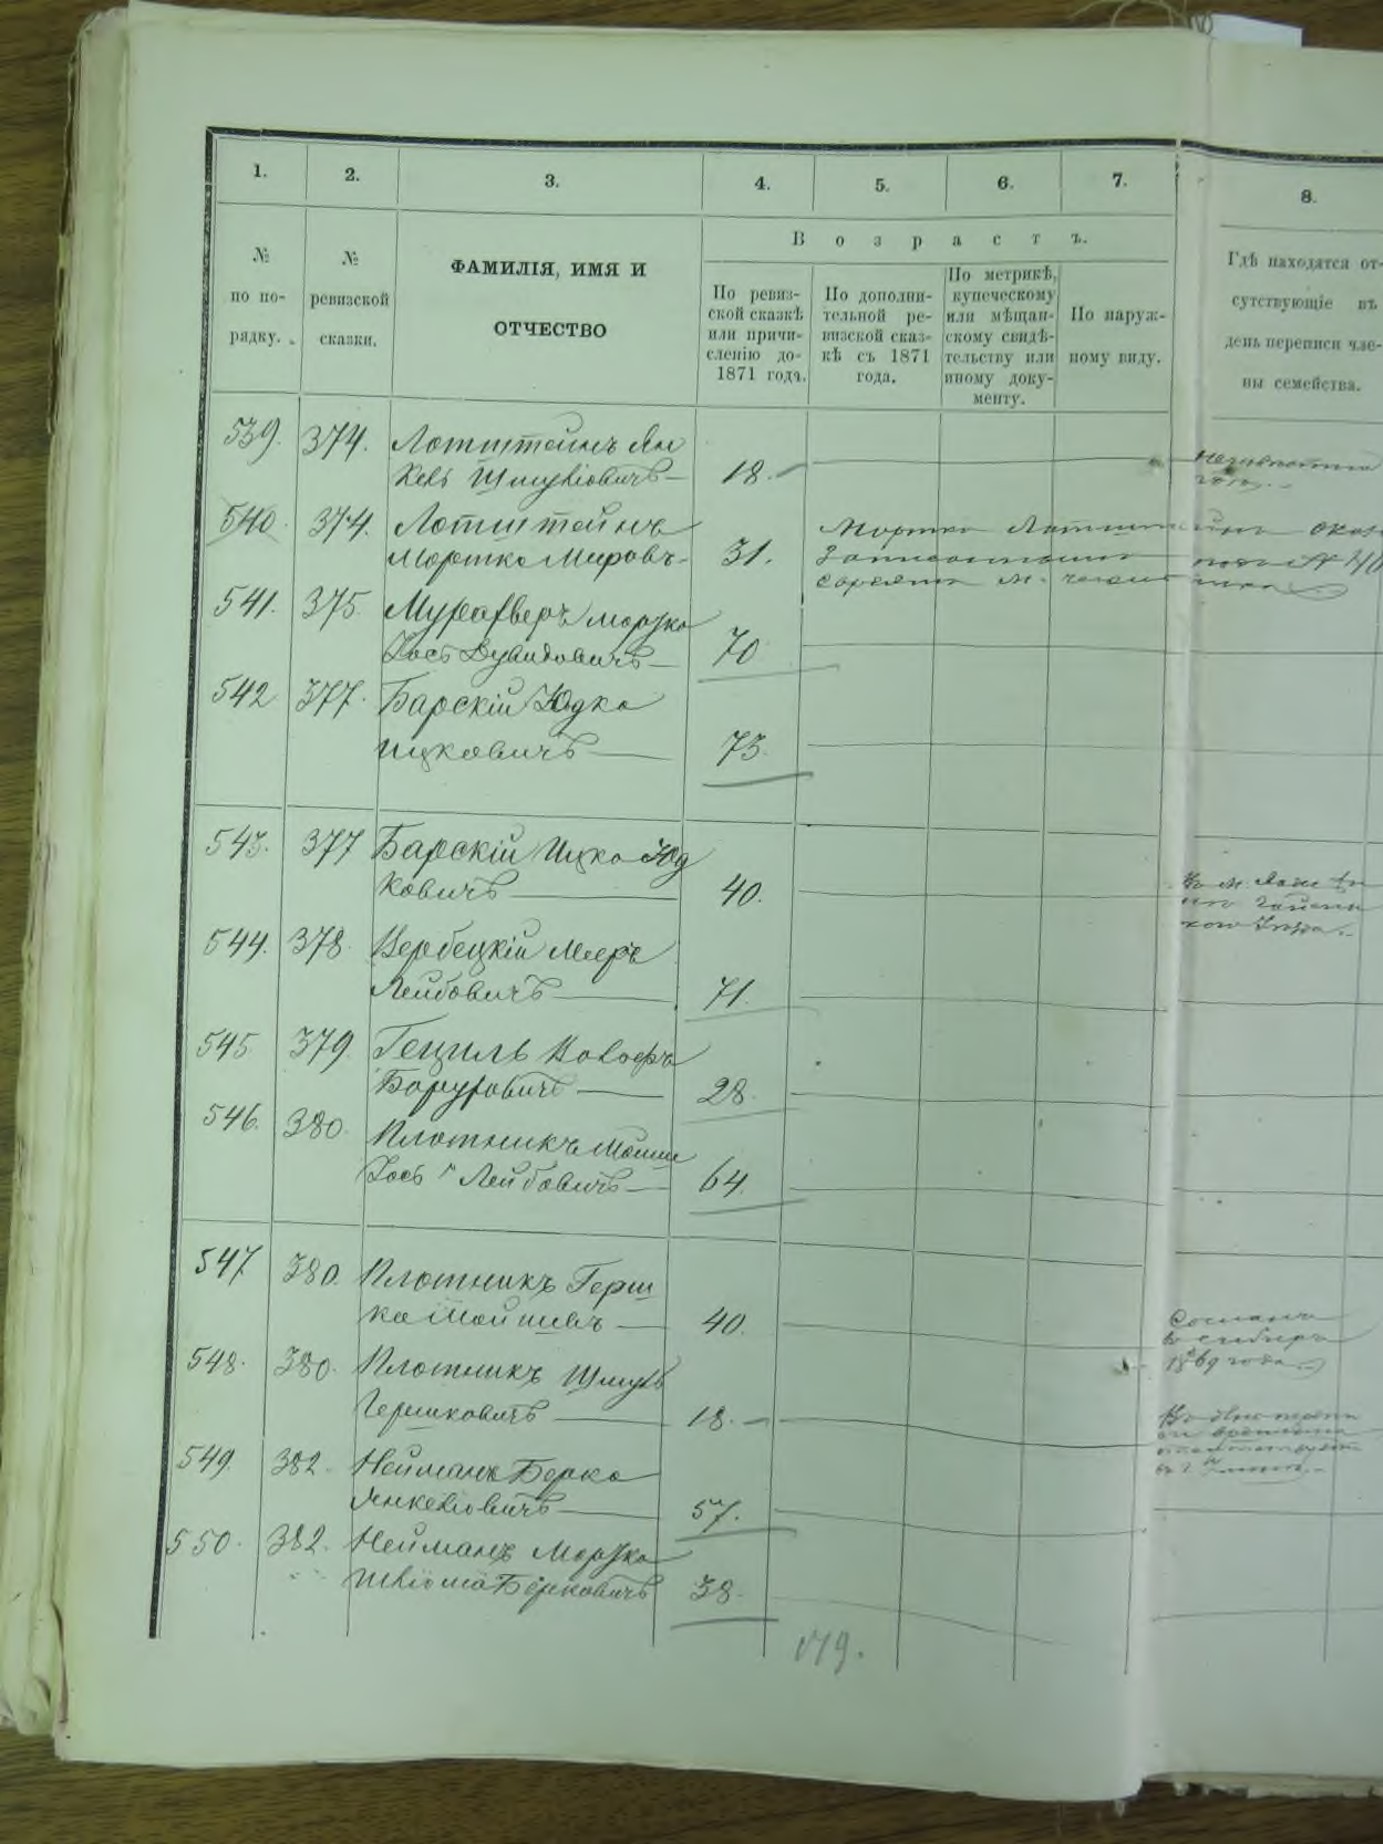 1. 2. 3. 4. 5. 6. 7. 8.
№
по по-
рядку.
№
ревизской
сказки.
ФАМИЛІЯ, ИМЯ И
ОТЧЕСТВО
Возрастъ.
По ревиз-
ской сказкѣ
или причи-
сленію до
1871 года.
По дополни-
тельной ре-
визской сказ-
кѣ съ 1871
года.
По метрикѣ,
купеческому
или мѣщан-
скому свидѣ-
тельству или
иному доку-
менту.
По наруж-
ному виду.
Гдѣ находятся от-
сутствующіе въ
день переписи чле-
ны семейства.
539. 374. Лотштейнъ Ян
кель Шмулiовичъ 18.
540. 374. Лотштейнъ
Мортко Мировъ 31.
Мортко
записанный № 40
541. 375. Мурафверъ Мортко
Іосъ Дувидовичъ 70
542 377. Барскій Юдко
Ицковичъ 73.
543. 377 Барскій Ицко Юд
ковичъ 40.
544. 378 Вербецкій Мееръ
Лейбовичъ 71.
545 379. Гециль
Боруховичъ 28.
546. 380. Плотникъ Мошко
Іось Лейбовичъ 64.
547 380. Плотникъ Герш
ко Мошковъ 40.
Сосланъ
въ Сибирь
1869 года
548. 380. Плотникъ Шмуль
Гершковичъ 18.
549. 382. Нейманъ Берко
Янкелiовичъ 57.
550. 382. Нейманъ Мортко
Шліома Берковичъ 38.